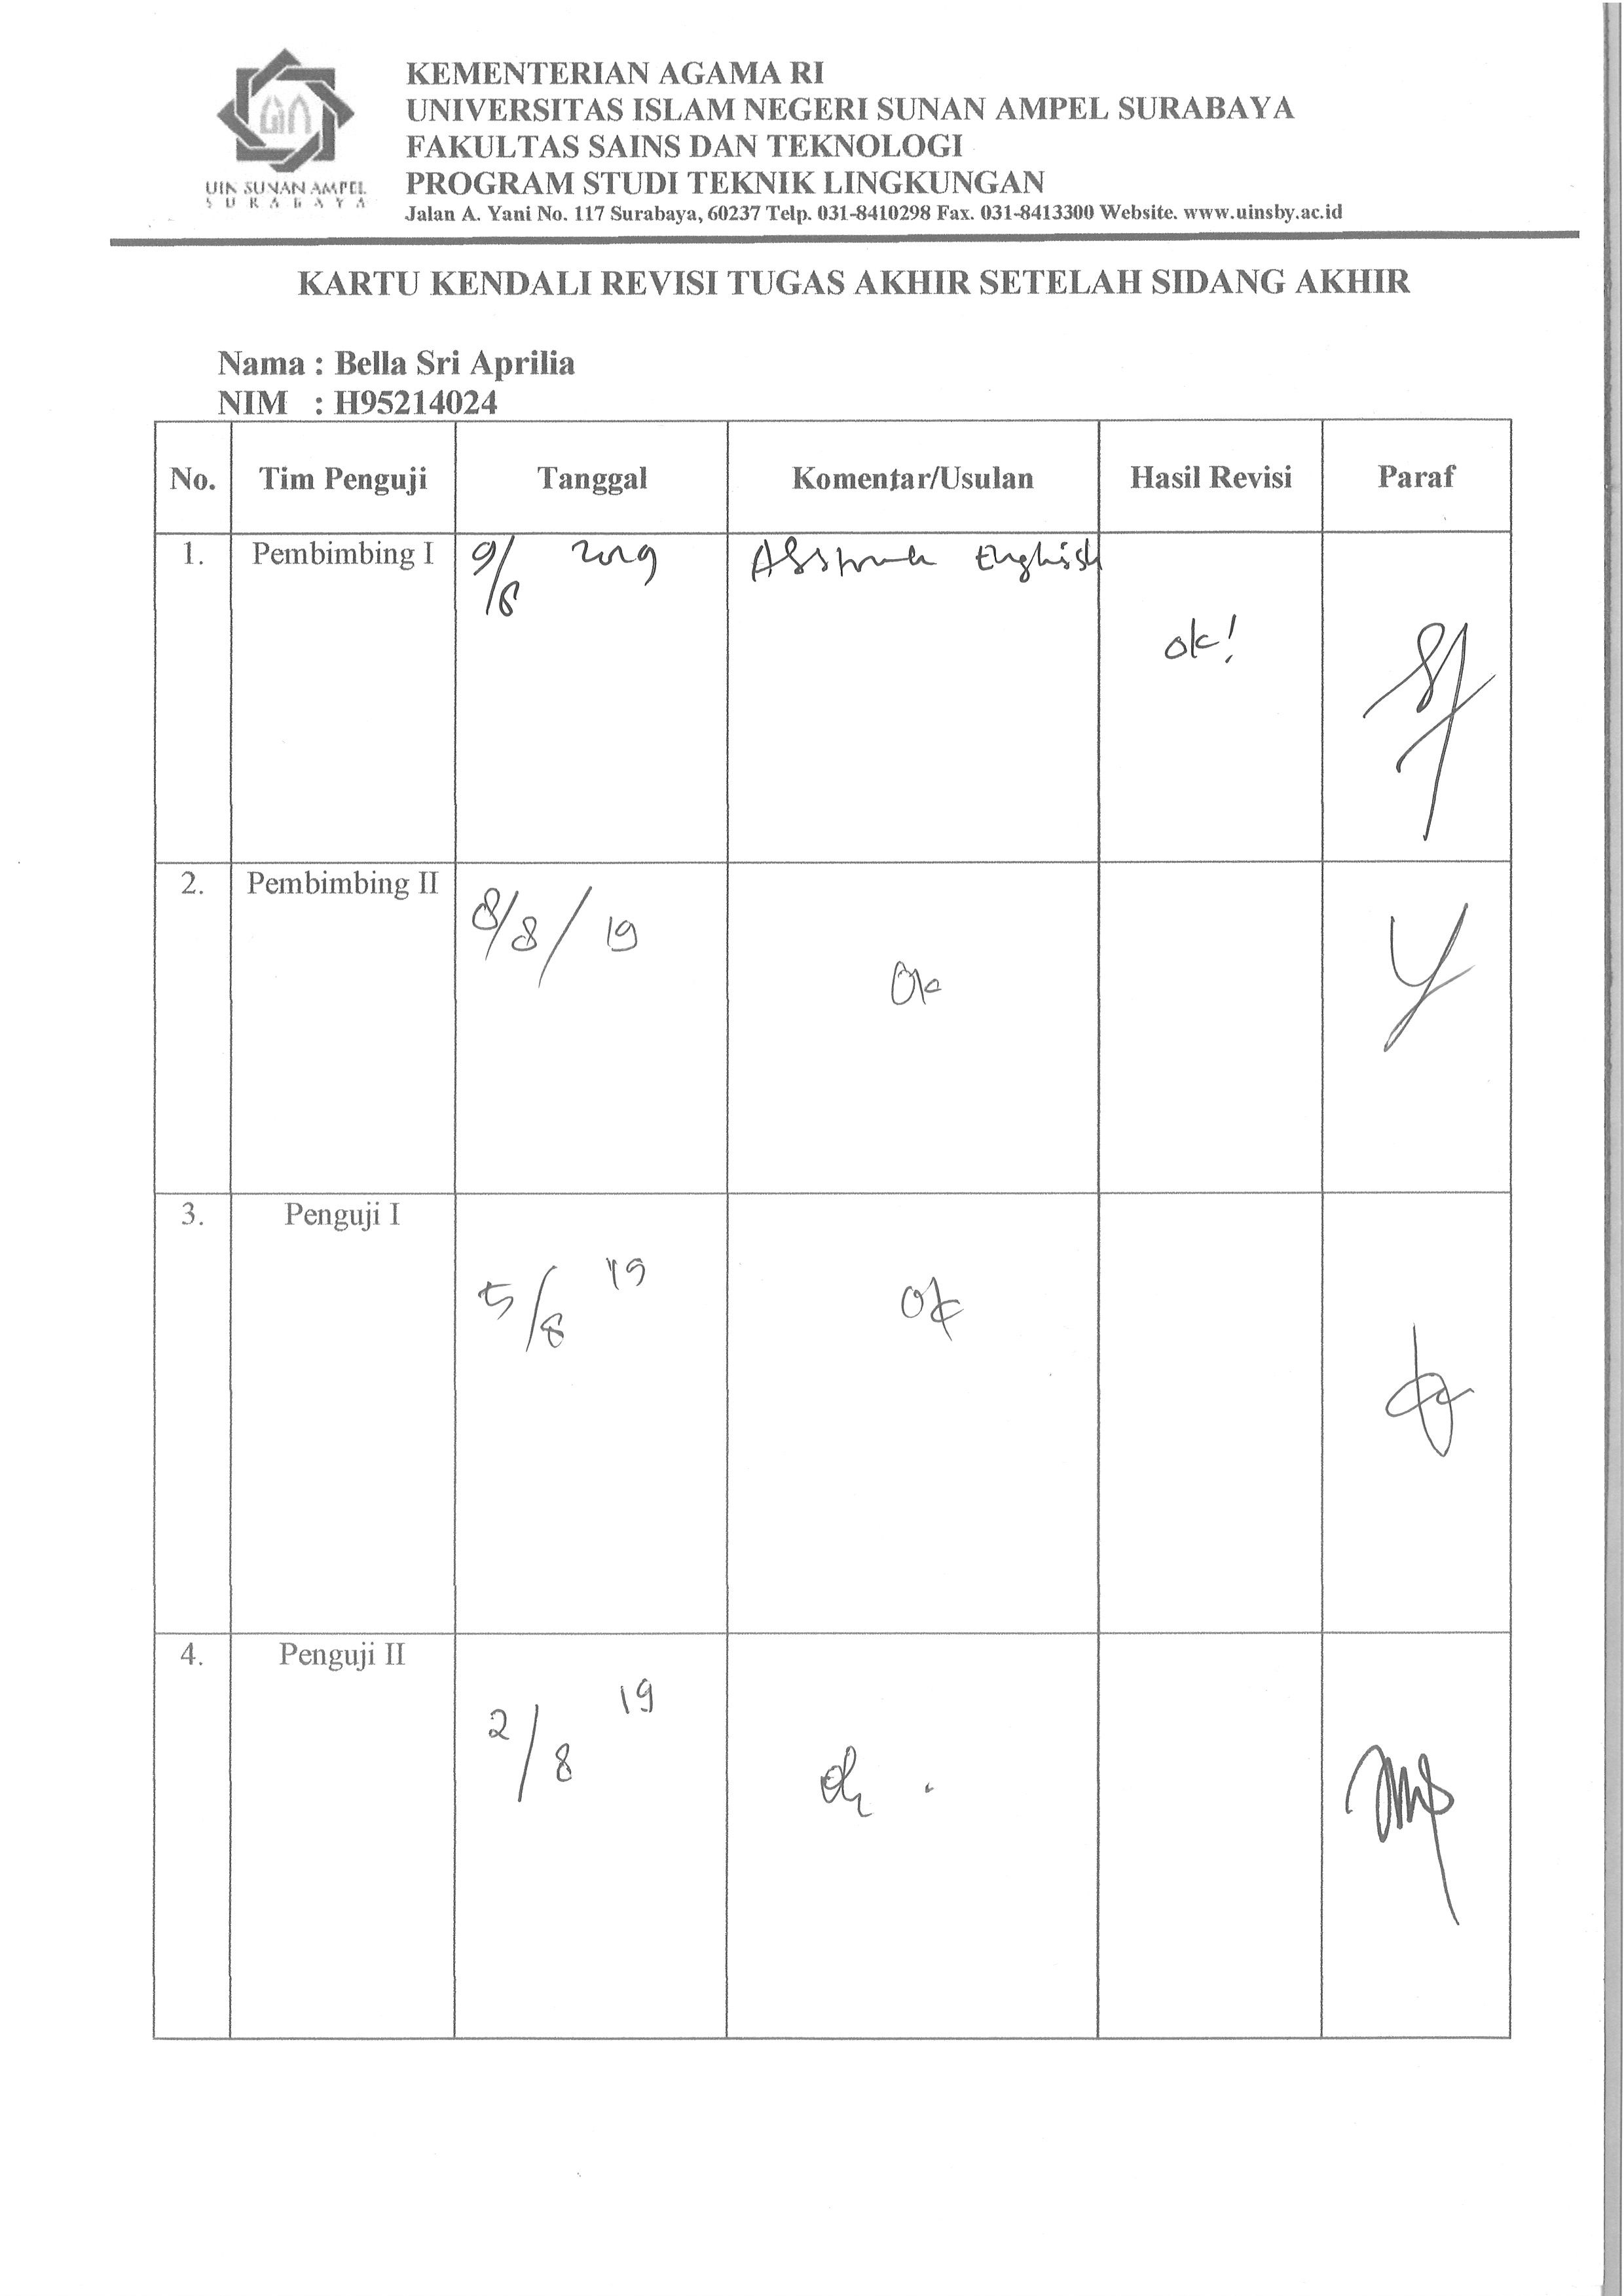 KEMENTERIAN AGAMA RI
UNIVERSITAS ISLAM NEGERI SUNAN AMPEL SURABAYA
FAKULTAS SAINS DAN TEKNOLOGI
PROGRAM STUDI TEKNIK LINGKUNGAN
UIN SUNAN AMPEL
SURABAYA
Jalan A. Yani No. 117 Surabaya, 60237 Telp. 031-8410298 Fax. 031-8413300 Website. www.uinsby.ac.id
KARTU KENDALI REVISI TUGAS AKHIR SETELAH SIDANG AKHIR
Nama : Bella Sri Aprilia
NIM : H95214024
No. Tim Penguji Tanggal Komentar/Usulan Hasil Revisi Paraf
1. Pembimbing I 9/8 2019 English
ok!
2. Pembimbing II 8/8/19
Ok
3. Penguji I
5/8 '19 Ok
4. Penguji II
2/8 19